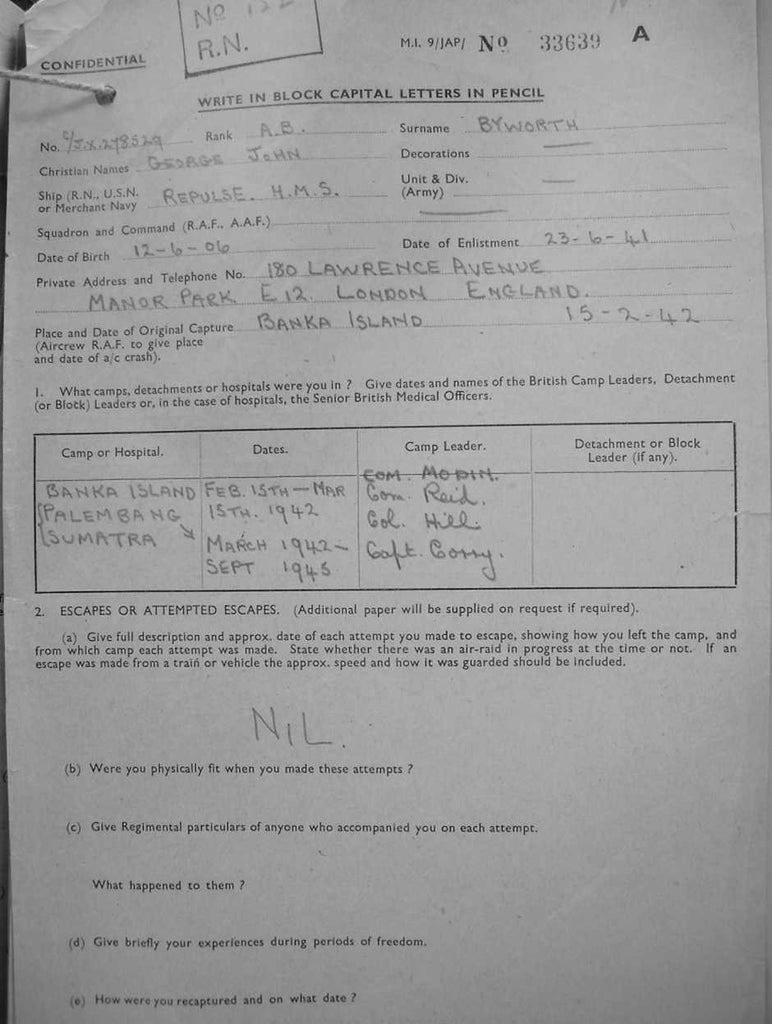 Nº 122
R.N.
CONFIDENTIAL
M.I. 9/JAP/ Nº 33639 A
WRITE IN BLOCK CAPITAL LETTERS IN PENCIL
No. C/J.X.278529 Rank A.B. Surname BYWORTH
Christian Names GEORGE JOHN Decorations
Ship (R.N., U.S.N. or Merchant Navy REPULSE. H.M.S. Unit & Div. (Army)
Squadron and Command (R.A.F., A.A.F.)
Date of Birth 12-6-06 Date of Enlistment 23-6-41
Private Address and Telephone No. 180 LAWRENCE AVENUE
MANOR PARK E 12. LONDON ENGLAND.
Place and Date of Original Capture BANKA ISLAND 15-2-42
(Aircrew R.A.F. to give place
and date of a/c crash).
1. What camps, detachments or hospitals were you in ? Give dates and names of the British Camp Leaders, Detachment
(or Block) Leaders or, in the case of hospitals, the Senior British Medical Officers.
Camp or Hospital. Dates. Camp Leader. Detachment or Block Leader (if any).
COM. MODIN.
BANKA ISLAND FEB. 15TH – MAR Com. Reid.
PALEMBANG 15TH. 1942 Col. Hill.
SUMATRA MARCH 1942 – Capt. Corry.
SEPT 1945
2. ESCAPES OR ATTEMPTED ESCAPES. (Additional paper will be supplied on request if required).
(a) Give full description and approx. date of each attempt you made to escape, showing how you left the camp, and
from which camp each attempt was made. State whether there was an air-raid in progress at the time or not. If an
escape was made from a train or vehicle the approx. speed and how it was guarded should be included.
NIL.
(b) Were you physically fit when you made these attempts ?
(c) Give Regimental particulars of anyone who accompanied you on each attempt.
What happened to them ?
(d) Give briefly your experiences during periods of freedom.
(e) How were you recaptured and on what date ?